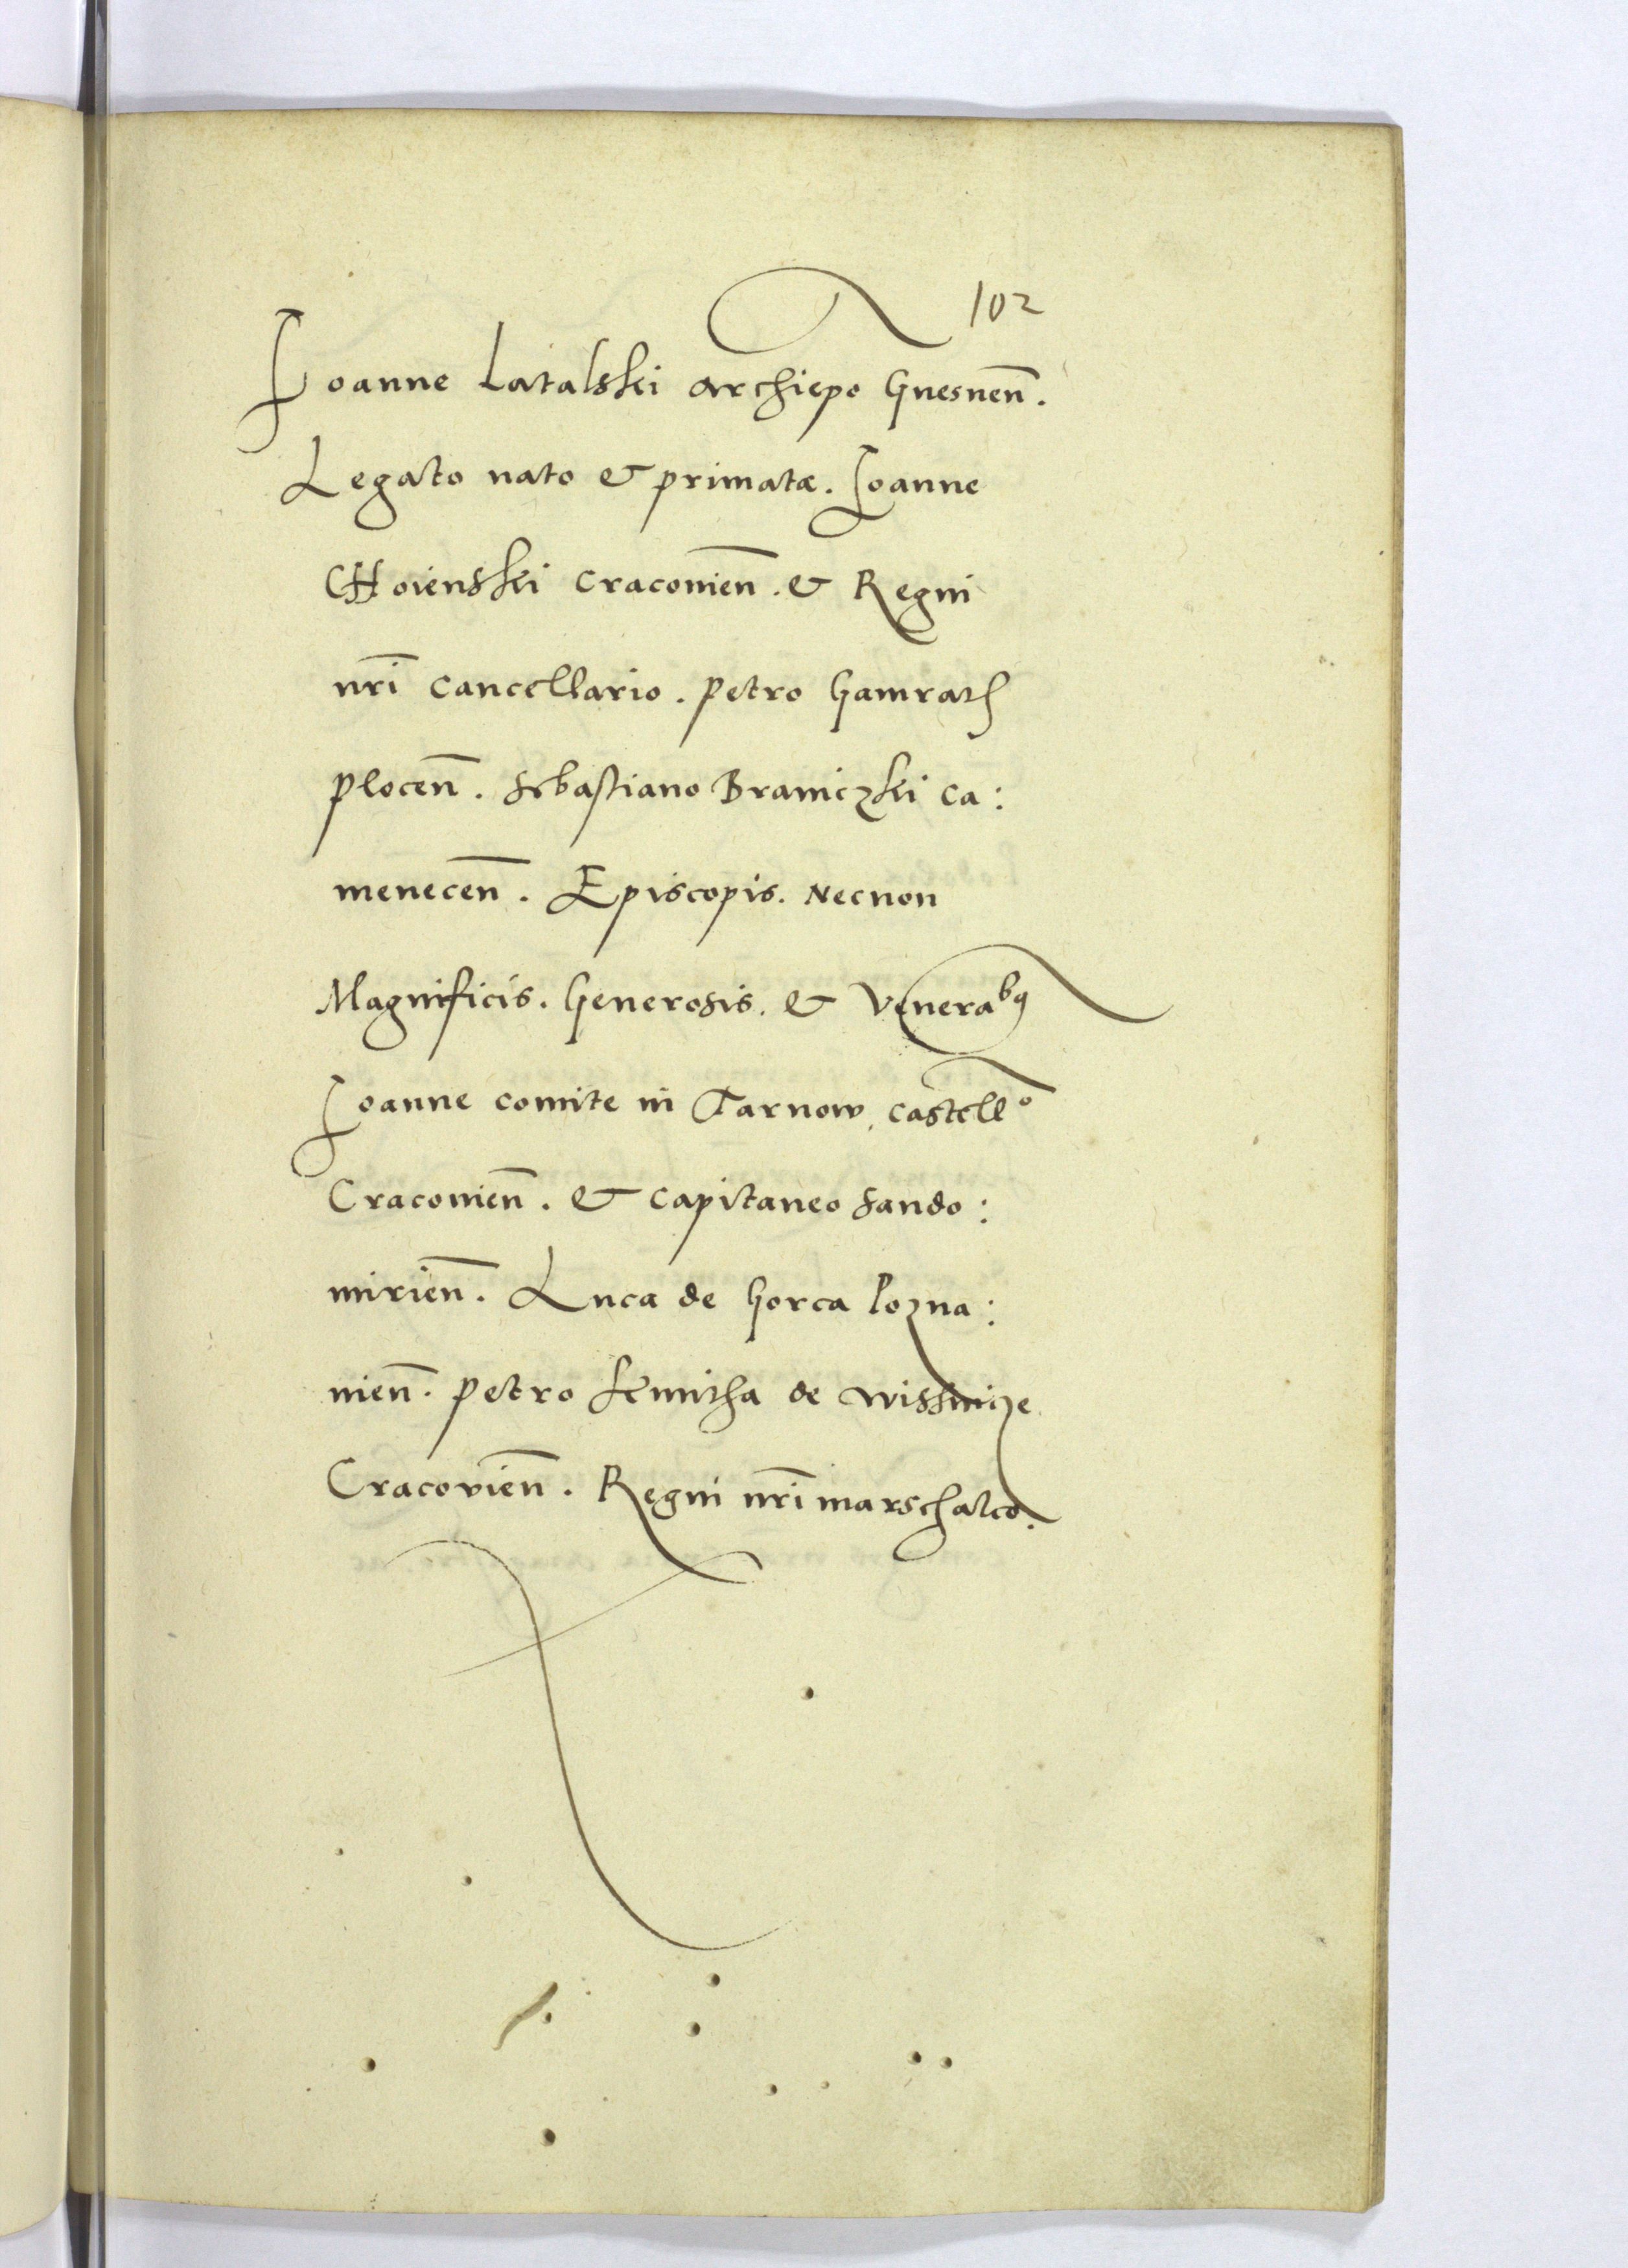 102
Ioanne Latalski archiepo Gnesnen̄.
Legato nato & primatæ. Ioanne
CHoienski Cracouien̄. & Regni
nr̄i Cancellario. Petro Gamrath
Plocen̄. Sebastiano Braniczki Ca:
menecen̄. Episcopis. Necnon
Magnificis. Generosis. & Venerabꝯ
Ioanne comite in Tarnow, castell̄o
Cracouien̄. & Capitaneo Sando:
mirien̄. Luca de Gorca Pozna:
nien̄. Petro Kmitha de Wissnicze
Cracovien̄. Regni nr̄i marschalco.